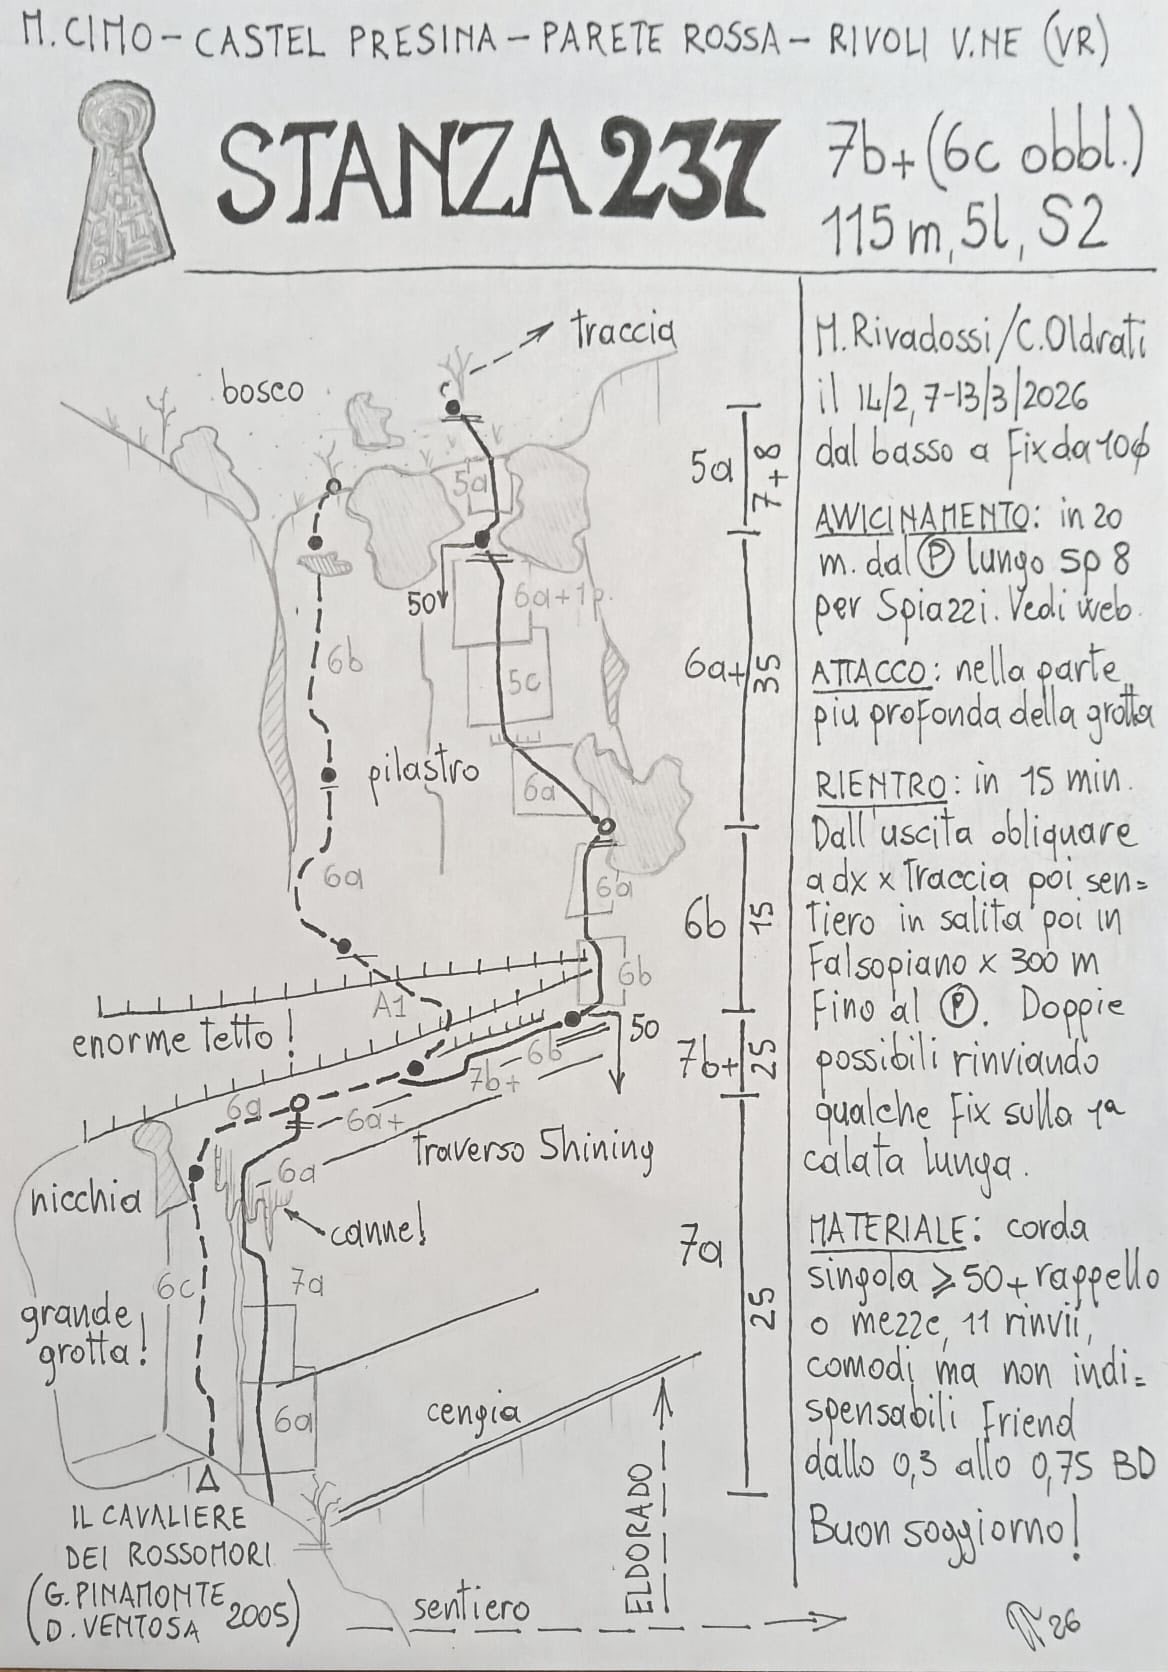 M. CIMO - CASTEL PRESINA - PARETE ROSSA - RIVOLI V.NE (VR)
STANZA 237
7b+ (6c obbl.)
115 m, 5l, S2
traccia
bosco
5a
50
6a+1p.
6b
5c
pilastro
6a
6a
6a
6b
A1
enorme tetto!
50
6b
7b+
6a
6a+
traverso Shining
6a
nicchia
canne!
6c
7a
grande
grotta!
6a
cengia
IL CAVALIERE
DEI ROSSOMORI
(G. PINAMONTE
D. VENTOSA 2005)
ELDORADO
sentiero
5a
7+8
6a+
35
6b
15
7b+
25
7a
25
M. Rivadossi/C. Oldrati
il 14/2, 7-13/3/2026
dal basso a Fix da 10ϕ
AVVICINAMENTO: in 20
m. dal Ⓟ lungo sp 8
per Spiazzi. Vedi web.
ATTACCO: nella parte
piu profonda della grotta
RIENTRO: in 15 min.
Dall'uscita obliquare
a dx x Traccia poi sen=
tiero in salita poi in
Falsopiano x 300 m
Fino al Ⓟ. Doppie
possibili rinviando
qualche Fix sulla 1ª
calata lunga.
MATERIALE: corda
singola ⩾ 50 + rappello
o mezze, 11 rinvii,
comodi ma non indi=
spensabili Friend
dallo 0,3 allo 0,75 BD
Buon soggiorno!
26